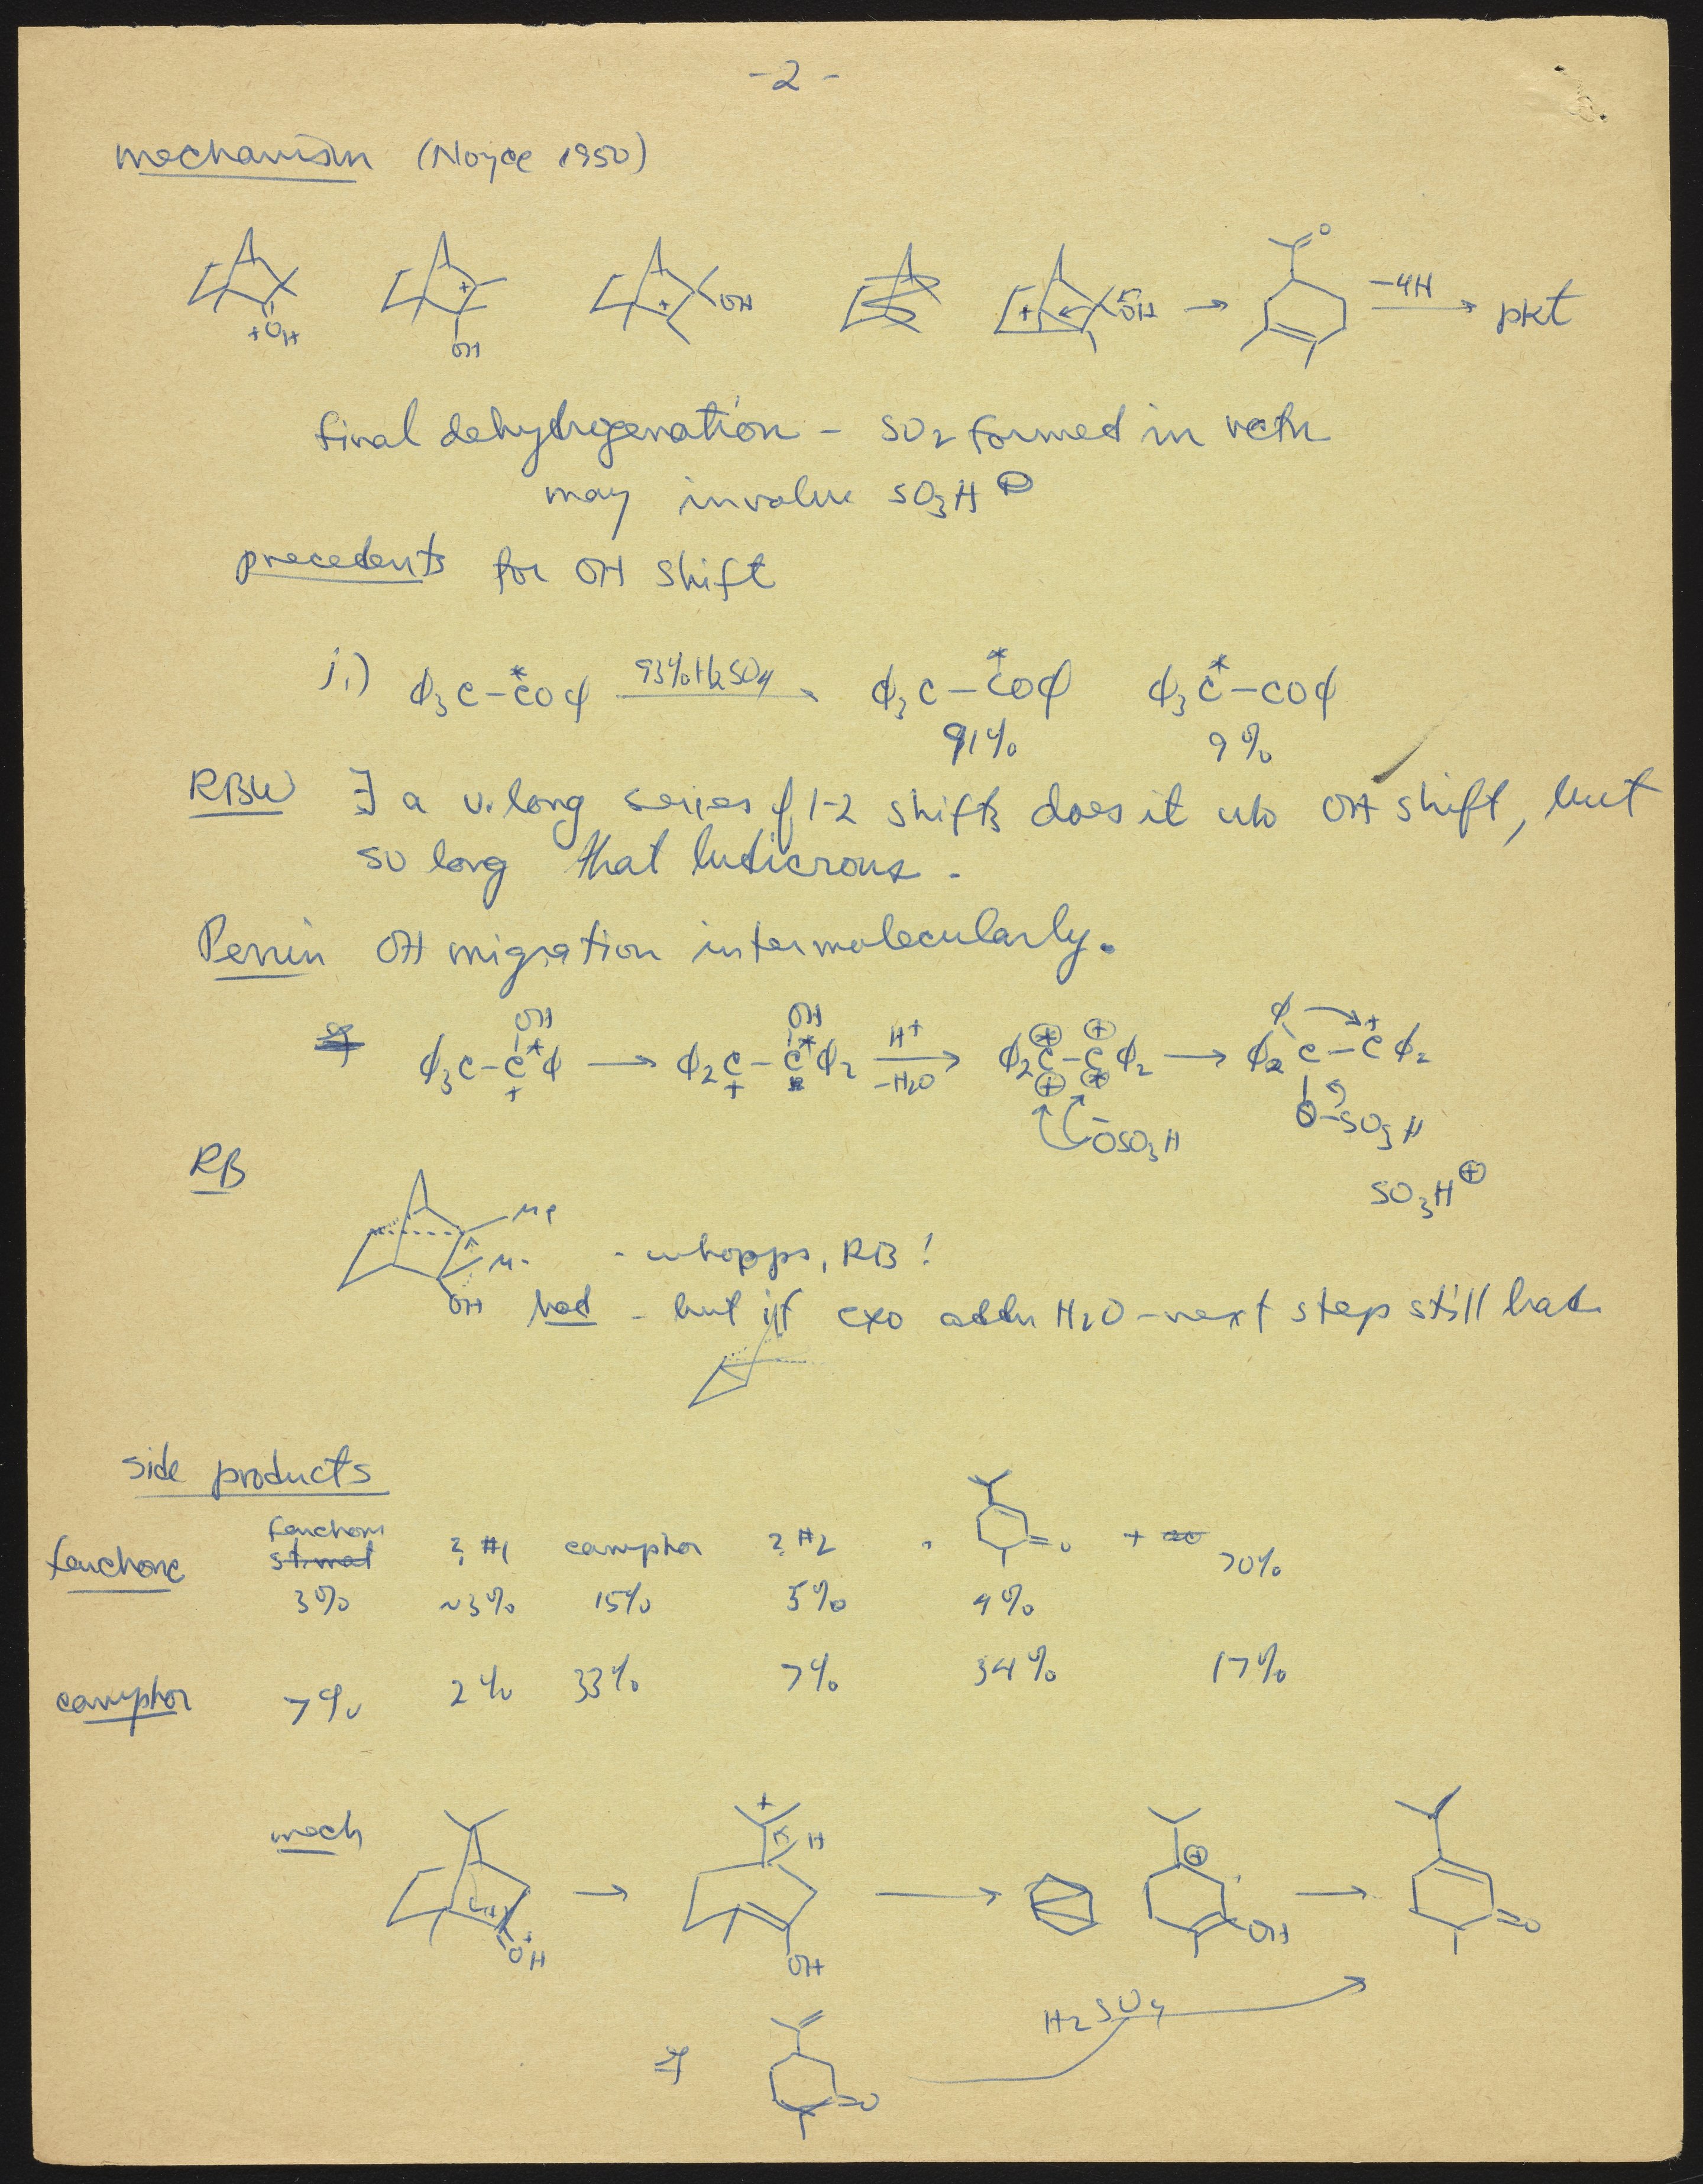 -2-
mechanism (Noyce 1950)
+OH
+
OH
+
OH
+
OH
→
O
-4H
→
pkt
final dehydrogenation - SO2 formed in rctn
may involve SO3H ⊕
precedents for OH shift
1.) ϕ3C-C*OϕH 93% H2SO4 → ϕ3C-C*Oϕ ϕ3C*-COϕ
91% 9%
RBW ∃ a v. long series of 1-2 shifts does it w/o OH shift, but
so long that ludicrous.
Perrin OH migration intermolecularly.
OH OH ϕ +
ϕ3C-C*ϕ → ϕ2C-C*ϕ2 H+ → ϕ2C-Cϕ2 → ϕ2C-Cϕ2
+ + -H2O ⊕ ⊕
-OSO3H
O-SO3H
SO3H⊕
RB
Me
- whopps, RB!
OH bad - but if exo addn H2O - next step still bad
side products
fenchone
fenchone ? #1 camphor ? #2 =O + 70%
3% ~3% 15% 5% 9%
camphor 7% 2% 33% 7% 34% 17%
mech
+
H
+
OH
→
OH
→
⊕
OH
→
O
H2SO4
O